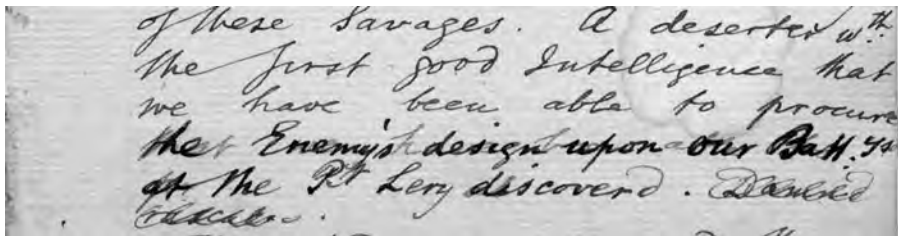 of these Savages. A deserter wth.
the first good Intelligence that
we have been able to procure
the Enemy's design upon our Batt.ys
at the Pt Levy discoverd.